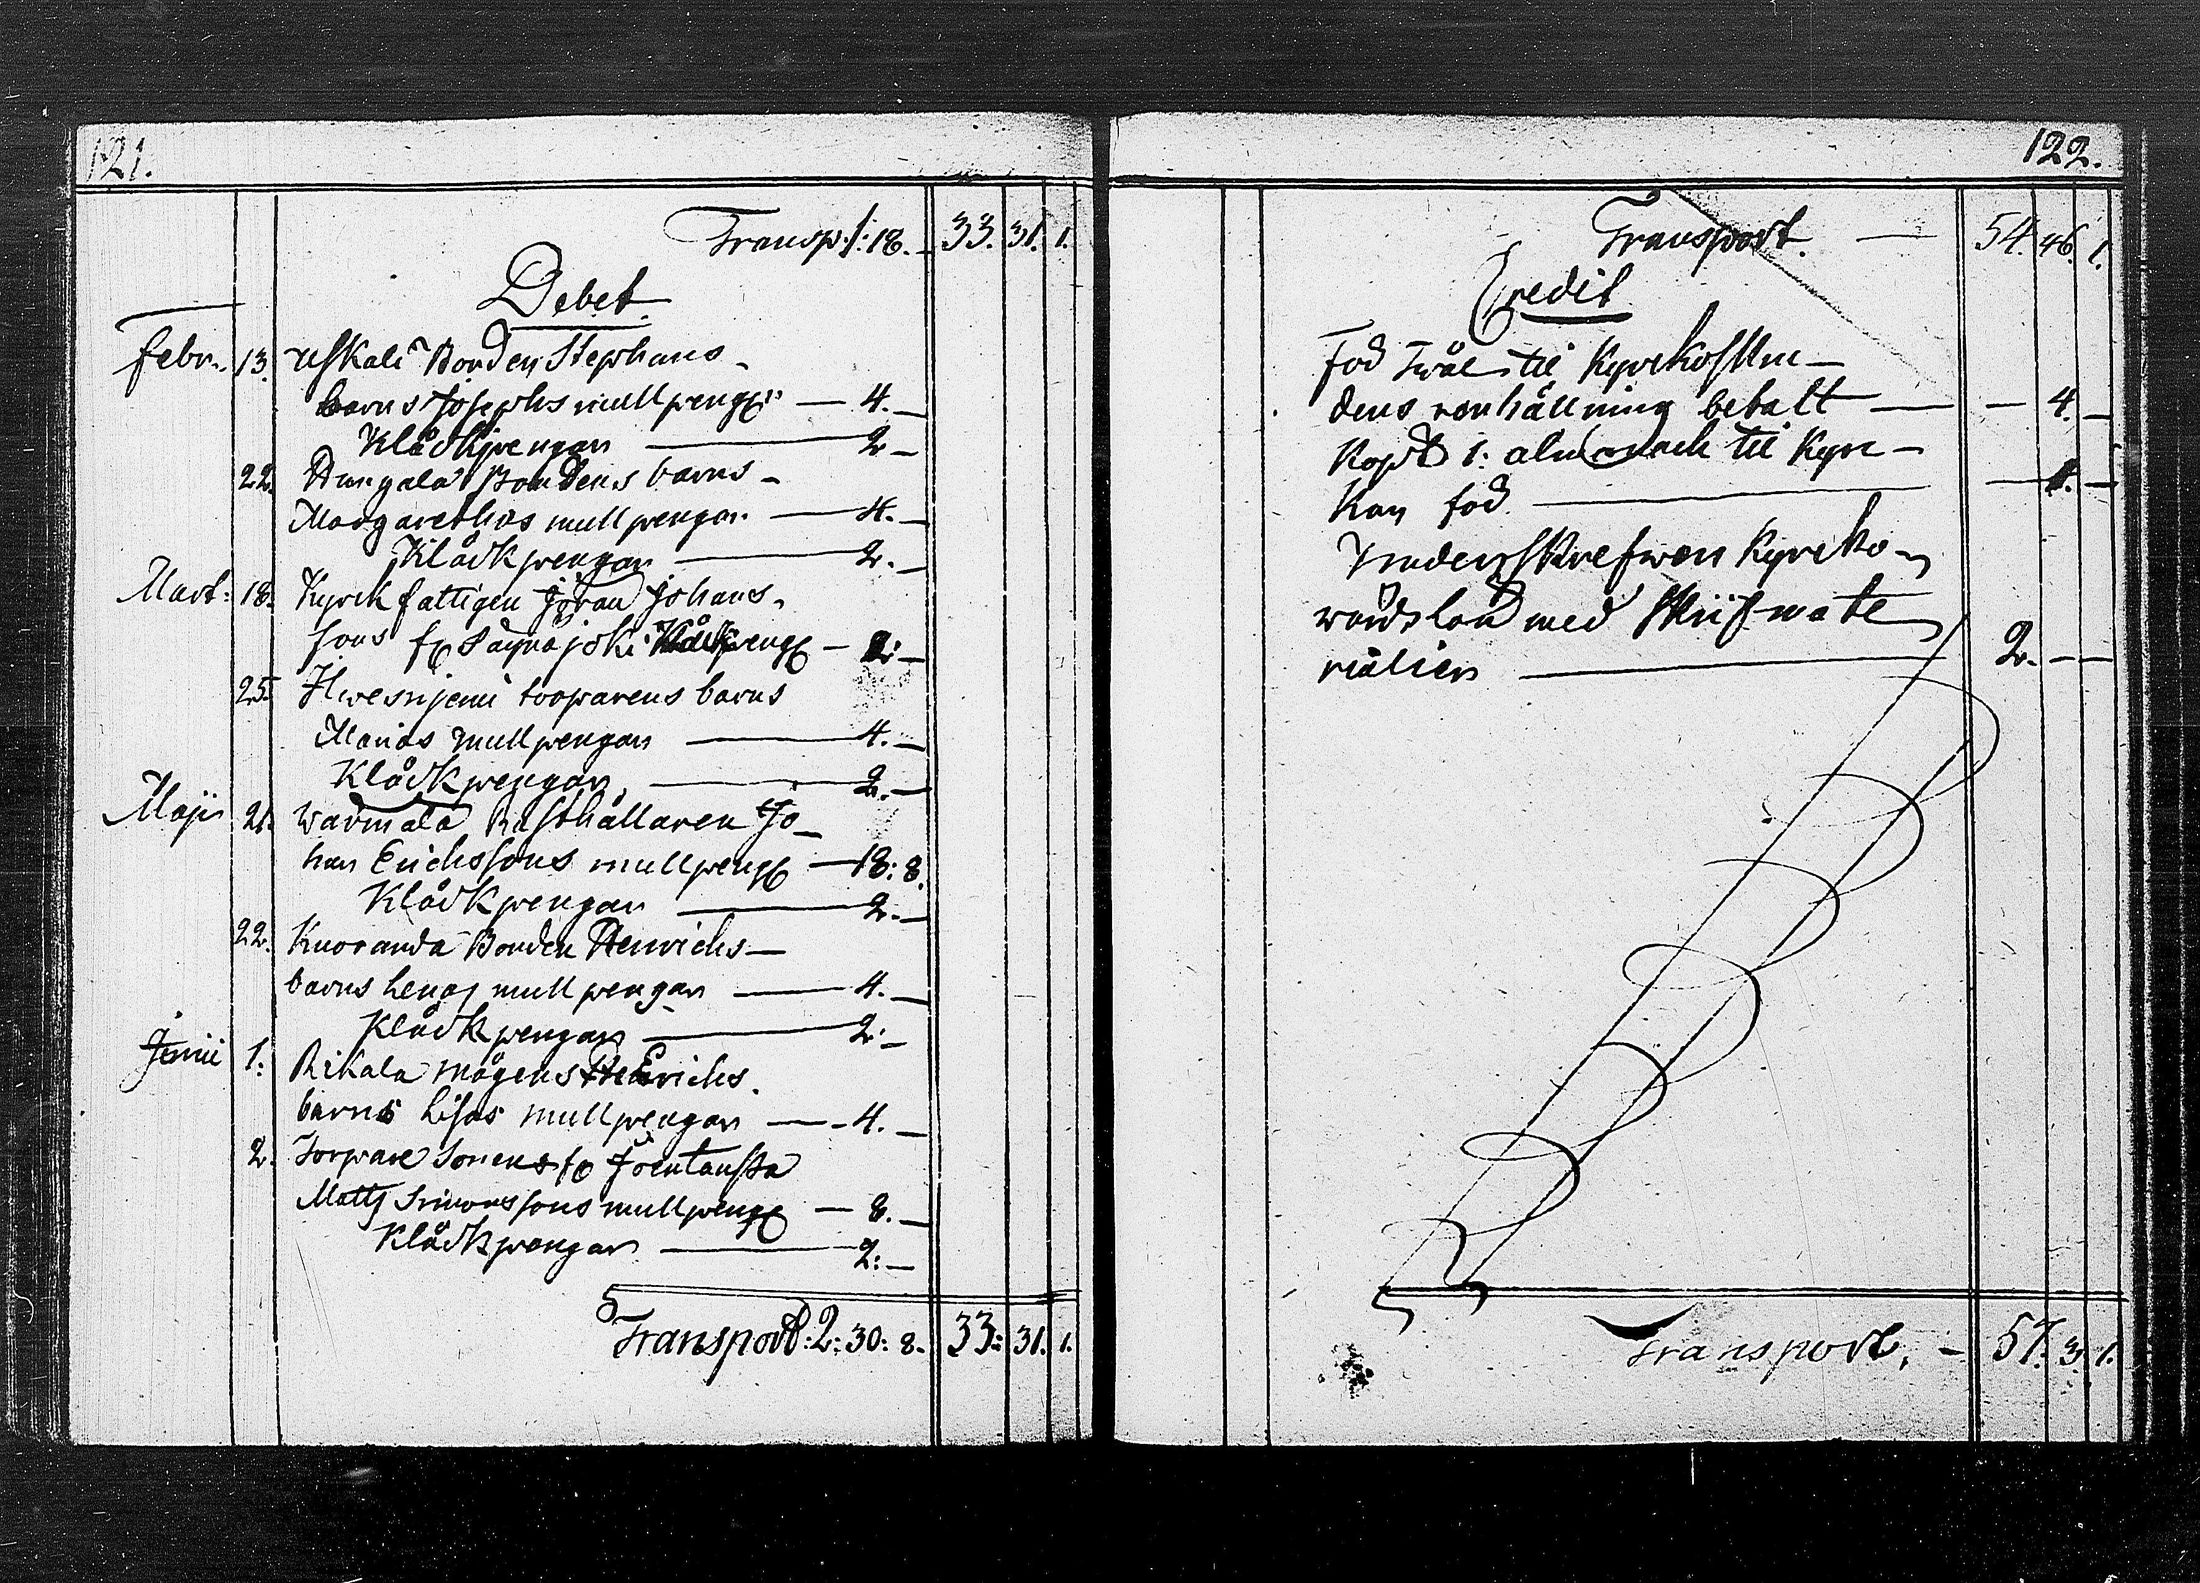 121.
Transp. 1: 18. – 33. 31. 1.
Debet.
Febr. 13. Uskali Bonden Stephans
barns Josephs mullpengr — 4. —
Klåckpengar — 2 —
22. Bondens barns
Margarethas mullpengar — 4. —
Klåckpengar — 2. —
Mart: 18. Kyrck fattigen Jöran Johans
sons fr Klåckpengr — 2: —
25. Ilwesnjemi torparens barns
Marias mullpengar — 4. —
Klåckpengar — 2. —
Maji 21. Warmala Rusthållaren Jo
han Erichssons mullpengr — 18: 8.
Klåckpengar — 2. —
22. Kuoranda Bonden Henrichs —
barns Lenas mullpengar — 4. —
Klåckpengar — 2: —
Junii 1: Rikala mågens Henrichs
barns Lisas mullpengar — 4. —
2. Torpare Sonens fr
Matts Simonssons mullpengr — 8. —
Klåckpengar — 2: —
Transport: 2: 30: 8. 33: 31. 1.
122.
Transport. — 54. 46. 1.
Credit
För Twål til Kyrckoskru
dens renhållning betalt — — 4. —
Kopt 1: almanach til Kyrc
kan för — — 4. —
Underskrefwen Kyrcko
wärds lön med Skrifmate
rialier — 2. — —
Transport. — 57. 3. 1.